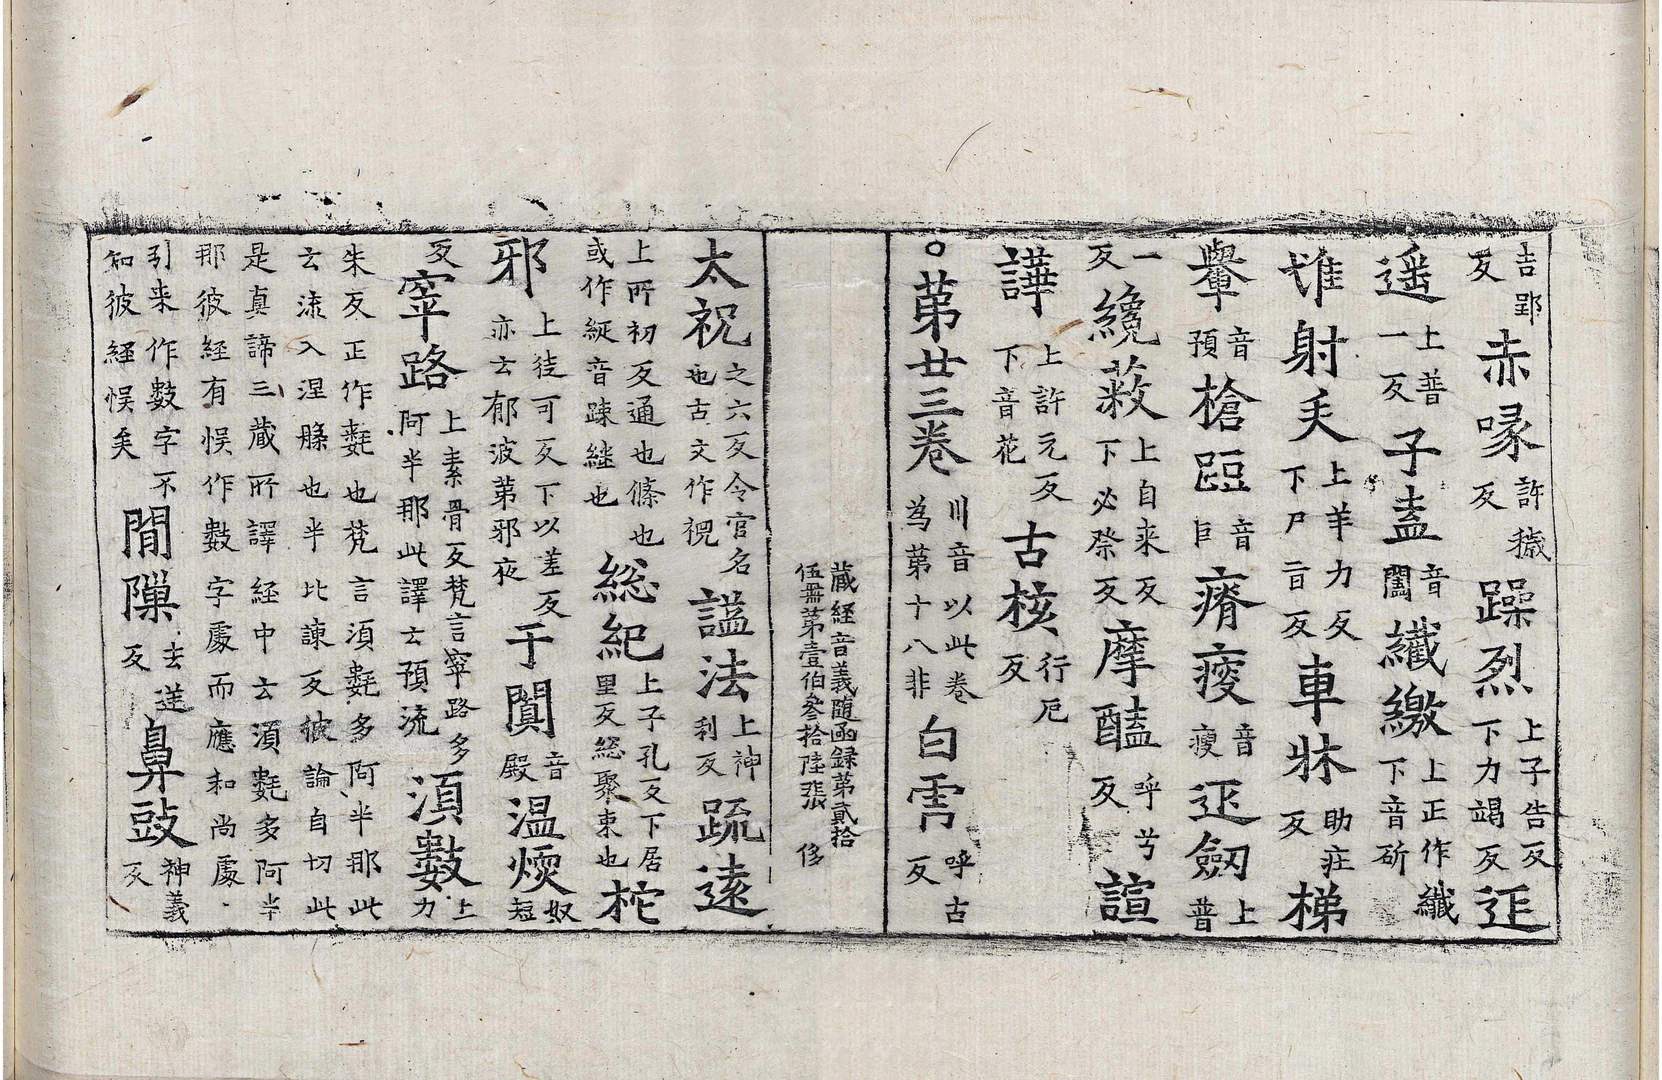 吉郢反赤喙許穢反躁烈上子告反下力竭反迋
遥上普一反子盍音闔纎繳上正作纖下音斫
䧳射㚢上羊力反下尸亩反車牀助疘反梯
轝音預槍跙音巨瘠瘦音瘦迋劒上普
一反纔蔌上自来反下必祭反摩醯呼兮反諠
譁上許元反下音花古核行厄反
○第廿三卷川音以此卷為第十八非白雩呼古反
蔵経音義随函録第貳拾
伍冊第壹伯叁拾陸張 侈
太祝之六反令官名也古文作祝謚法上神利反䟽逺
上所初反通也絛也或作緃音踈継也緫紀上子孔反下居里反緫聚束也柁
邪上徒可反下以差反亦云郁波第邪夜于闐音殿温煗奴短
反窣路上素骨反梵言窣路多阿半那此譯云預流湏數上力
朱反正作𣯫也梵言湏𣯫多阿半那此云流入涅槃也半比諫反彼論自切此
是真諦三蔵所譯経中云湏𣯫多阿半那彼経有悮作數字處而應和尚處
引来作數字不知彼経悮矣閒隟去逆反鼻豉神義反